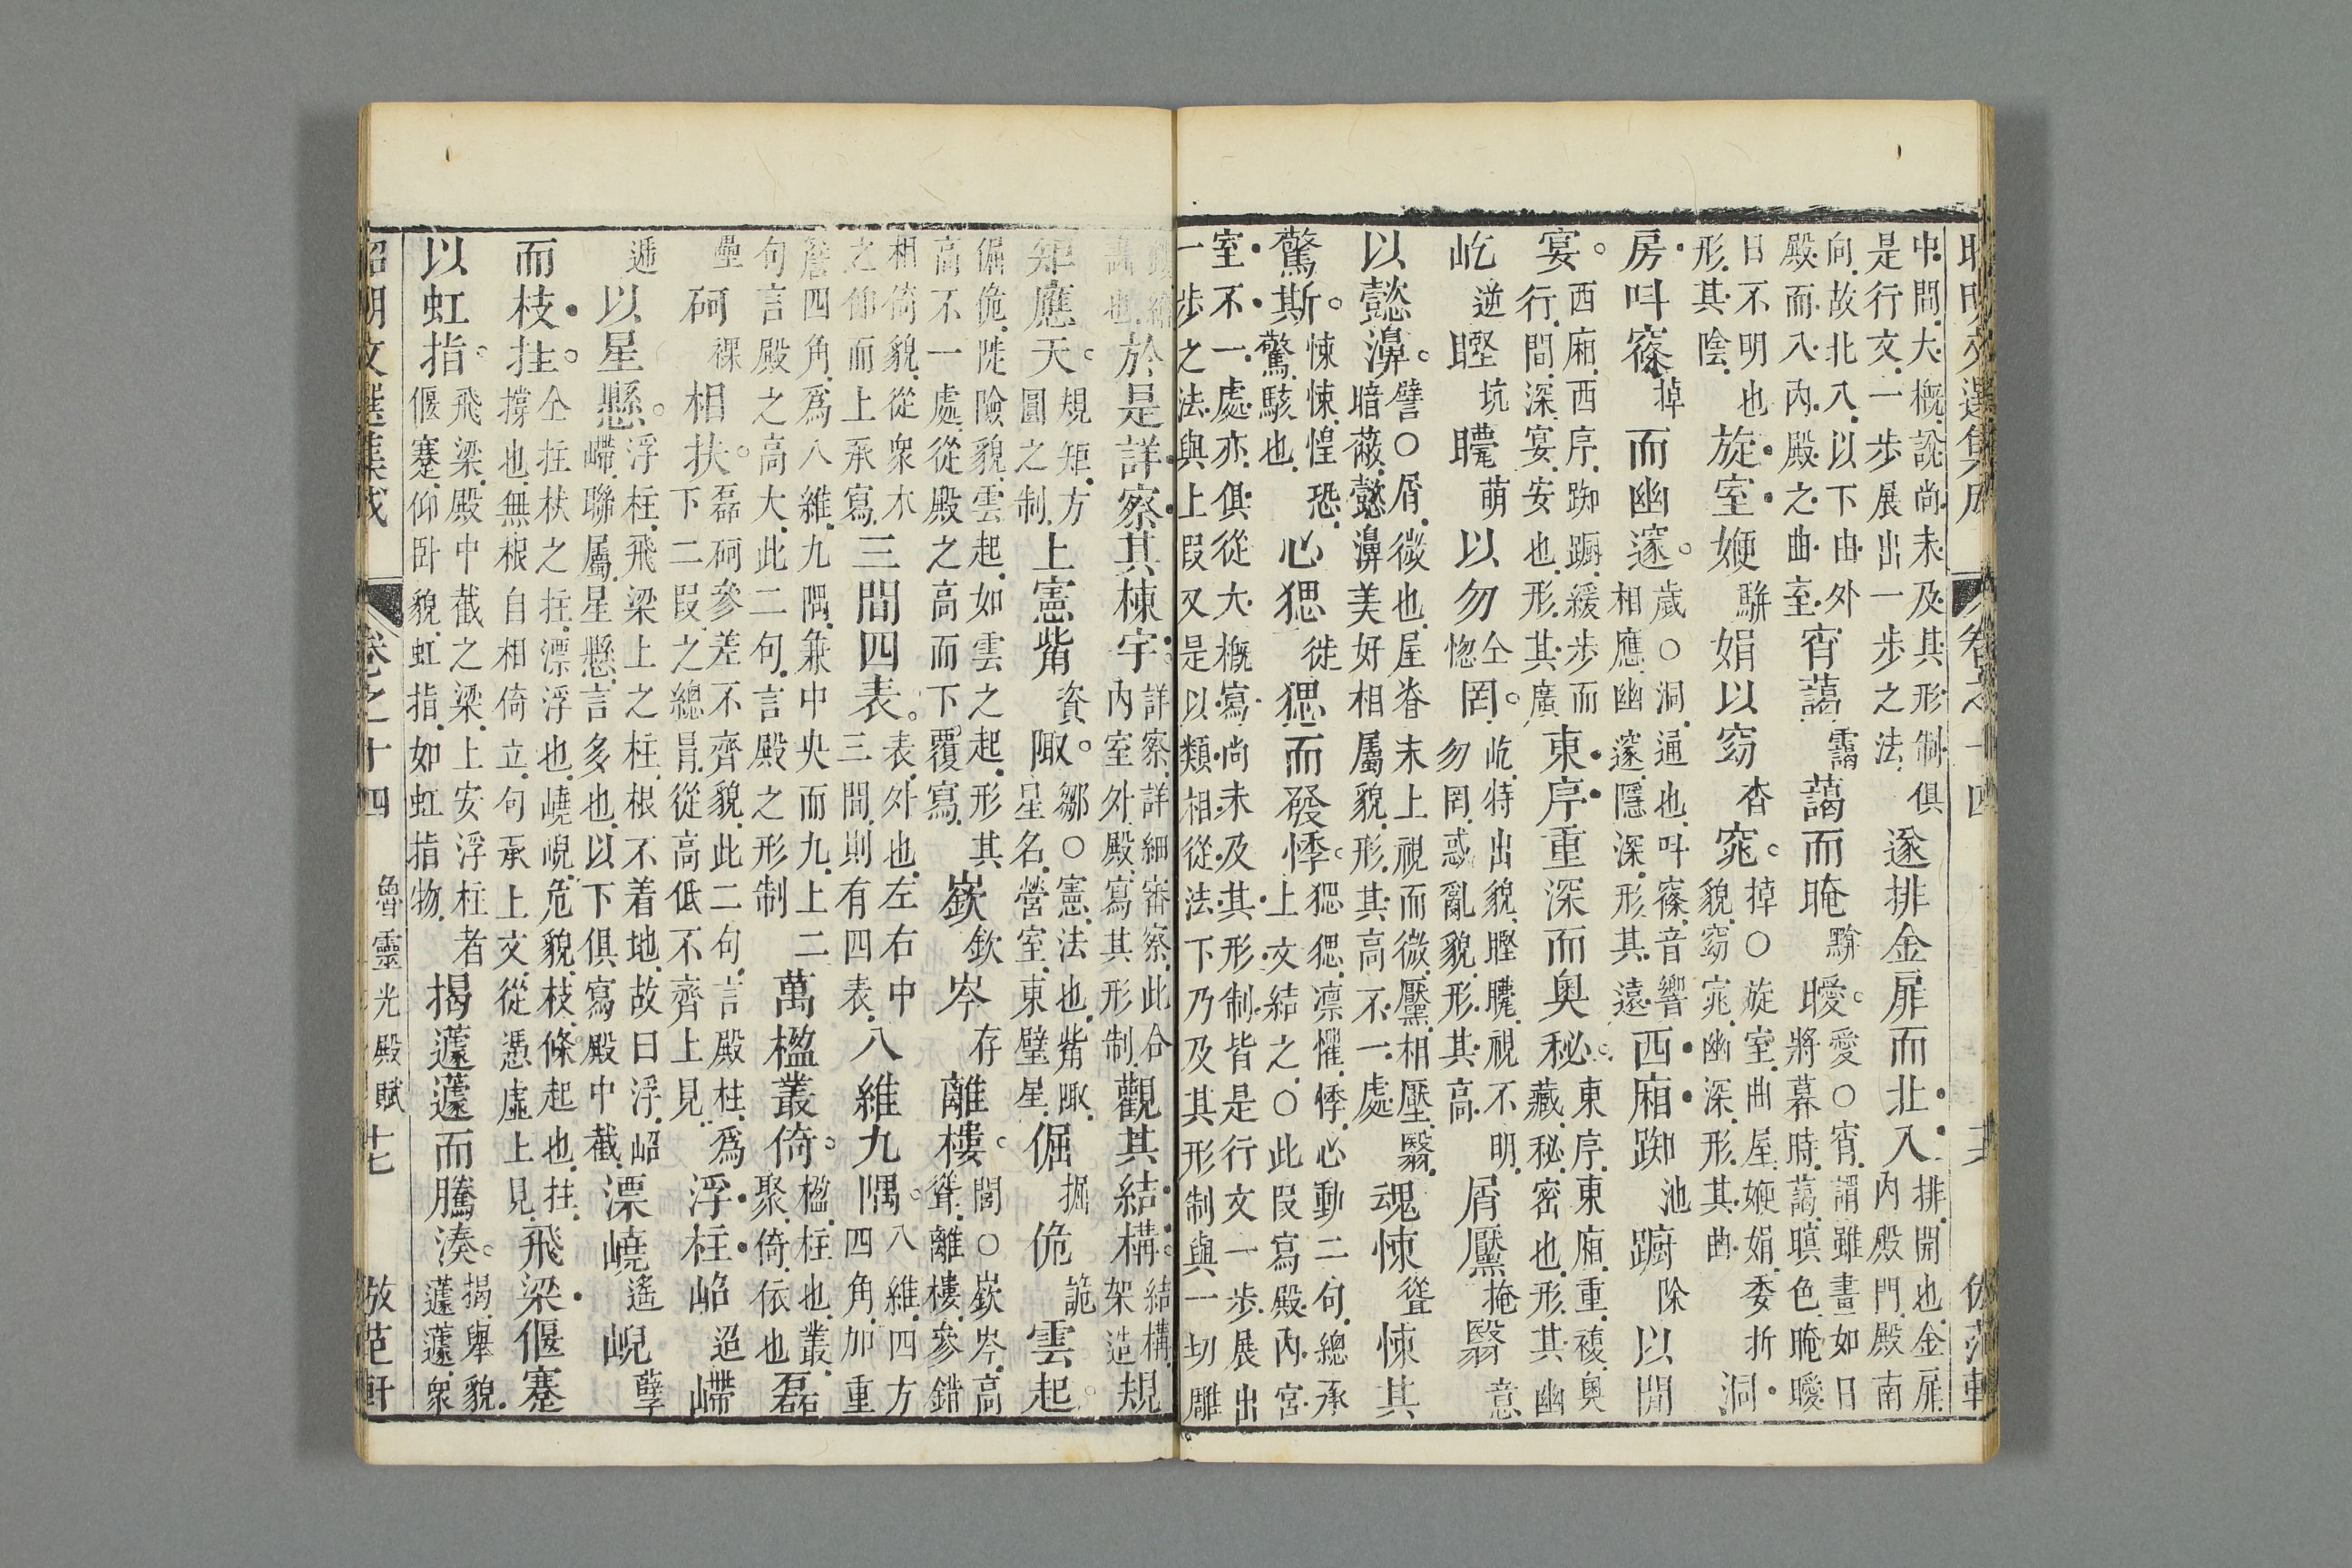 昭明文選集成 卷之十四 十六 倣范軒
中間大概說尚未及其形制俱
是行文一步展出一步之法
遂排金扉而北入
排開也金扉
內殿門殿南
向故北入以下由外
殿而入內殿之曲至
宵藹靄藹而晻黤曖
愛○宵謂雖晝如日
將暮時藹暝色晻曖
日不明也
形其陰
旋室㛹駢娟以窈杳窕
掉○旋室曲屋㛹娟委折
貌窈窕幽深形其曲
洞
房叫窱掉而幽邃
歲○洞通也叫窱音響
相應幽邃隱深形其遠
西廂踟池躕除以閒
宴
西廂西序踟躕緩步而
行間深宴安也形其廣
東序重深而奧秘
東序東廂重複奧
藏秘密也形其幽
屹逆 坑 萌以勿仝惚罔
屹特出貌 視不明
勿罔惑亂貌形其高
屑黶掩翳意
以懿濞
譬○屑微也屋脊末上視而微黶相壓翳
暗薉懿濞美好相屬貌形其高不一處
魂悚聳悚其
驚斯
悚悚惶恐
驚駭也
心𤟧徙𤟧而發悸
𤟧𤟧凜懼悸心動二句總承
上文結之○此段寫殿內宮
室不一處亦俱從大概寫尚未及其形制皆是行文一步展出
一步之法與上段又是以類相從法下乃及其形制與一切雕
鏤繪
畫也
於是詳察其棟宇
詳察詳細審察此合
內室外殿寫其形制
觀其結構
結構
架造
規
矩應天
規矩方
圓之制
上憲觜貲陬
鄒○憲法也觜陬
星名營室東壁星
倔掘佹詭雲起
倔佹陡險貌雲起如雲之起形其
高不一處從殿之高而下覆寫
嶔欽岑存離樓
閭○嶔岑高
聳離樓參錯
相倚貌從衆木
之仰而上承寫
三間四表
表外也左右中
三間則有四表
八維九隅
八維四方
四角加重
簷四角爲八維九隅兼中央而九上二
句言殿之高大此二句言殿之形制
萬楹叢倚
楹柱也叢
聚倚依也
磊
壘砢裸相扶
磊砢參差不齊貌此二句言殿柱爲
下二段之總冒從高低不齊上見
浮柱岧迢嵽
遞以星懸
浮柱飛梁上之柱根不着地故曰浮岧
嵽聯屬星懸言多也以下俱寫殿中截
漂嶢遙峴孽
而枝拄
仝拄杖之拄漂浮也嶢峴危貌枝條起也拄
撐也無根自相倚立句承上文從憑虛上見
飛梁偃蹇
以虹指
飛梁殿中截之梁上安浮柱者
偃蹇仰卧貌虹指如虹指物
揭蘧蘧而騰湊
揭舉貌
蘧蘧衆
昭明文選集成 卷之十四 魯靈光殿賦 十七 倣范軒